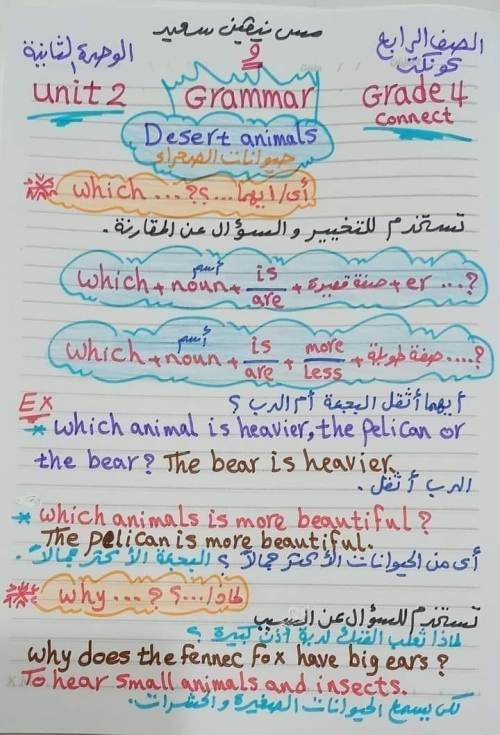 مس نيڤين سعيد
الوحدة الثانية
الصف الرابع
كونكت
unit 2
Grammar
Grade 4
connect
Desert animals
حيوانات الصحراء
which ... ? أى / ايهما ...؟
تستخدم للتخيير و السؤال عن المقارنة .
which + noun اسم + is / are + صفة قصيرة + er ...?
which + noun اسم + is / are + more / Less + صفة طويلة ....?
أيهما أثقل البجعة أم الدب ؟
Ex
* which animal is heavier, the pelican or
the bear? The bear is heavier.
الدب أثقل .
* which animals is more beautiful ?
The pelican is more beautiful.
أى من الحيوانات الأكثر جمالاً ؟ البجعة الأكثر جمالاً .
why ... ? لماذا ...؟
تستخدم للسؤال عن السبب
لماذا ثعلب الفنك لدية أذن كبيرة ؟
why does the fennec fox have big ears ?
To hear small animals and insects.
لكى يسمع الحيوانات الصغيرة و الحشرات .